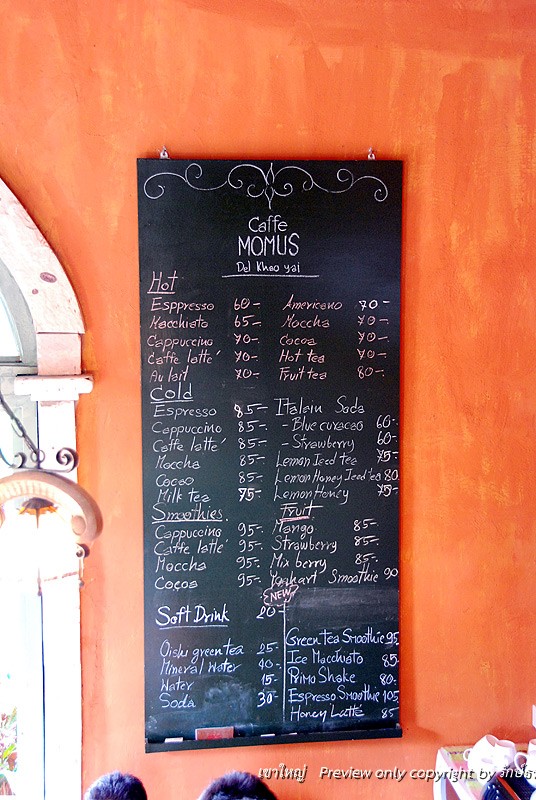 Caffe
MOMUS
Del Khao yai
Hot
Esppresso 60-
Macchiato 65-
Cappuccino 70-
Caffe latte´ 70-
Au lait 70-
Americano 70-
Moccha 70-
Cocoa 70-
Hot tea 70-
Fruit tea 80-
Cold
Espresso 85-
Cappuccino 85-
Caffe latte´ 85-
Moccha 85-
Cocoa 85-
Milk tea 75-
Italain Soda
- Blue curacao 60-
- Strawberry 60-
Lemon Iced tea 75-
Lemon Honey Iced tea 80
Lemon Honey 75-
Smoothies
Cappuccino 95-
Caffe latte´ 95-
Moccha 95-
Cocoa 95-
Fruit
Mango 85-
Strawberry 85-
Mix berry 85-
Smoothie 90
NEW
Soft Drink 20-
Oishi green tea 25-
Mineral Water 40-
Water 15-
Soda 30-
Green tea Smoothie 95
Ice Macchiato 85-
Primo Shake 80-
Espresso Smoothie 105
Honey Latte´ 85-
เขาใหญ่ Preview only copyright by